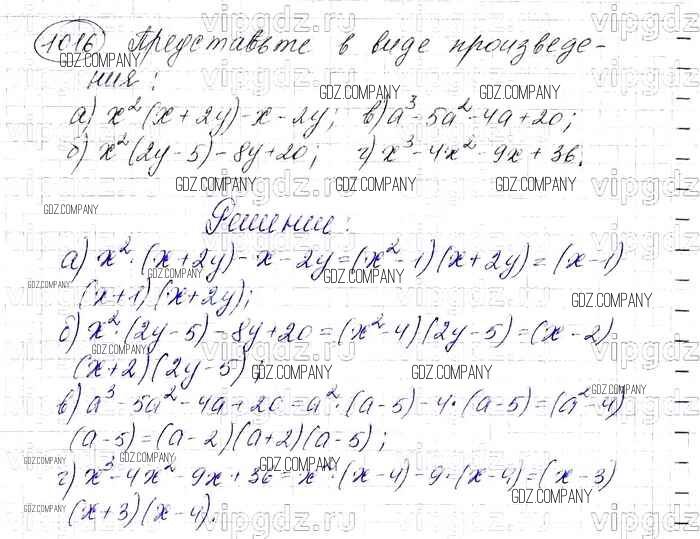 1016 Представьте в виде произведе-
ния:
а) x²(x+2y)-x-2y; в) a³-5a²-4a+20;
б) x²(2y-5)-8y+20; г) x³-4x²-9x+36.
Решение:
а) x²·(x+2y)-x-2y=(x²-1)(x+2y)=(x-1)
(x+1)(x+2y);
б) x²·(2y-5)-8y+20=(x²-4)(2y-5)=(x-2)
(x+2)(2y-5);
в) a³-5a²-4a+20=a²·(a-5)-4·(a-5)=(a²-4)
(a-5)=(a-2)(a+2)(a-5);
г) x³-4x²-9x+36=x²·(x-4)-9·(x-4)=(x-3)
(x+3)(x-4).
GDZ.COMPANY
vipgdz.ru